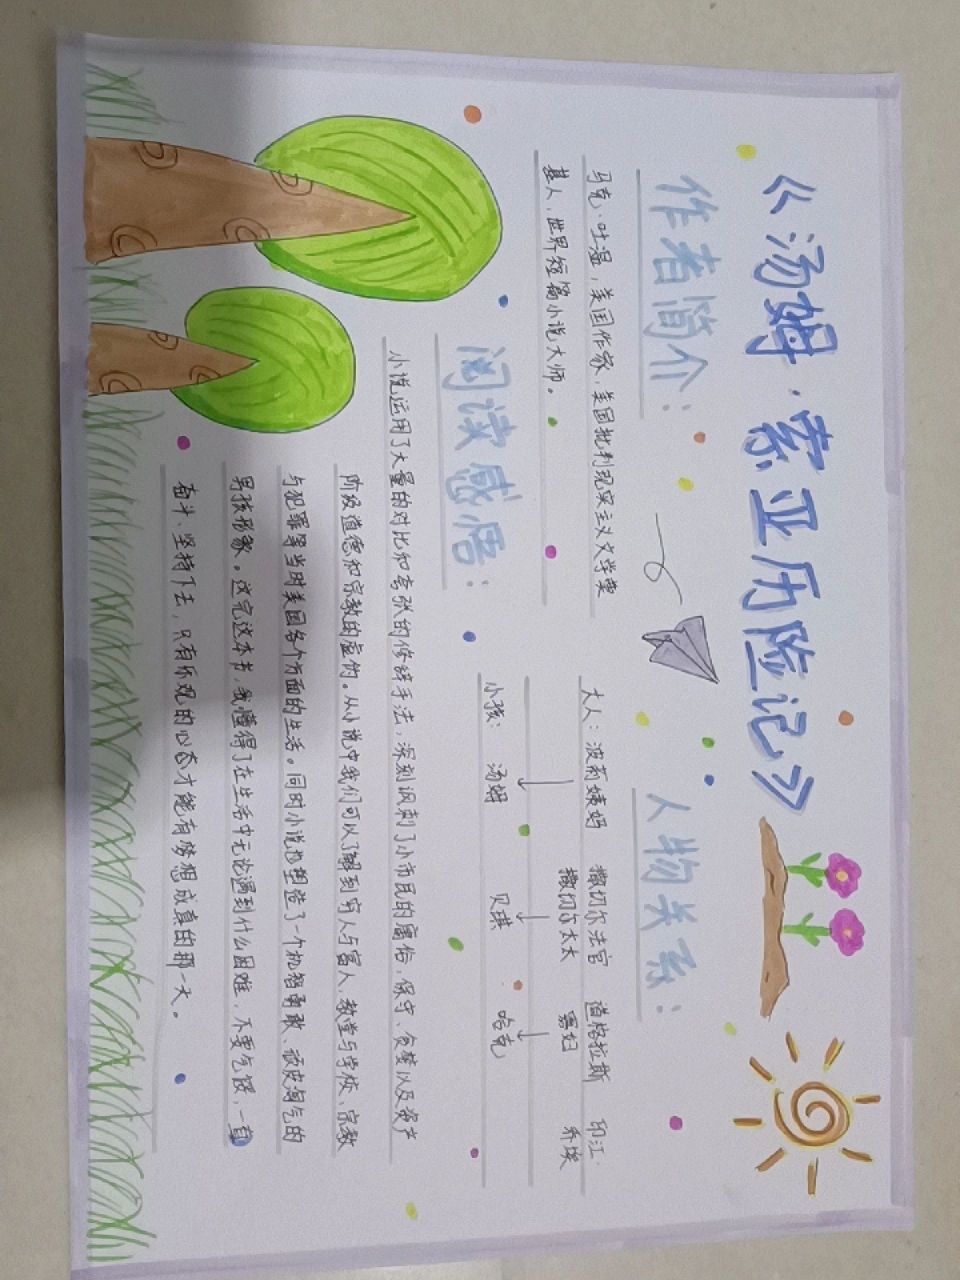 《汤姆·索亚历险记》
作者简介:
马克·吐温,美国作家,美国批判现实主义文学奠
基人,世界短篇小说大师。
人物关系:
大人: 波莉姨妈 撒切尔法官 道格拉斯 印江·
撒切尔太太 寡妇 乔埃
小孩: 汤姆 贝琪 哈克
阅读感悟:
小说运用了大量的对比和夸张的修辞手法,深刻讽刺了小市民的庸俗,保守、贪婪以及资产
阶级道德和宗教的虚伪。从小说中我们可以了解到穷人与富人,教堂与学校、宗教
与犯罪等当时美国各个方面的生活。同时小说也塑造了一个机智勇敢、顽皮淘气的
男孩形象。这完这本书,我懂得了在生活中无论遇到什么困难,不要气馁,一直
奋斗、坚持下去,只有乐观的心态才能有梦想成真的那一天。